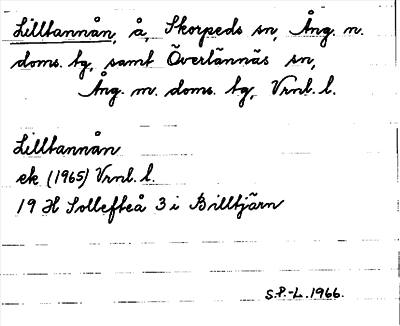 Lilltannån, å, Skorpeds sn, Ång. n.
doms. tg, samt Överlännäs sn,
Ång. m. doms. tg, Vrnl. l.
Lilltannån
ek (1965) Vrnl. l.
19 H Sollefteå 3 i Billtjärn
S.P.-L. 1966.